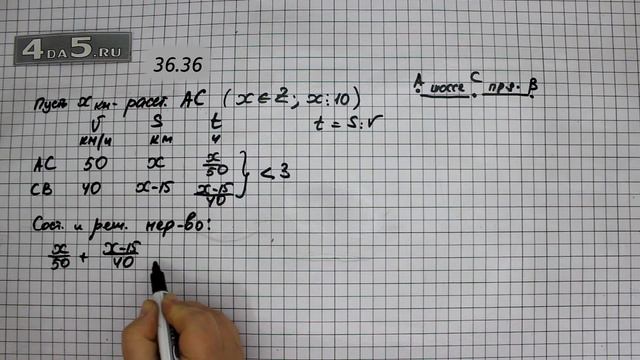 4DA5.RU
36.36
Пусть x км - расст. AC (x ∈ Z; x⋮10)
A шоссе C пр.д. B
V S t
км/ч км ч
t = S:V
AC 50 x x/50
CB 40 x-15 x-15/40
< 3
Сост. и реш. нер-во:
x/50 + x-15/40